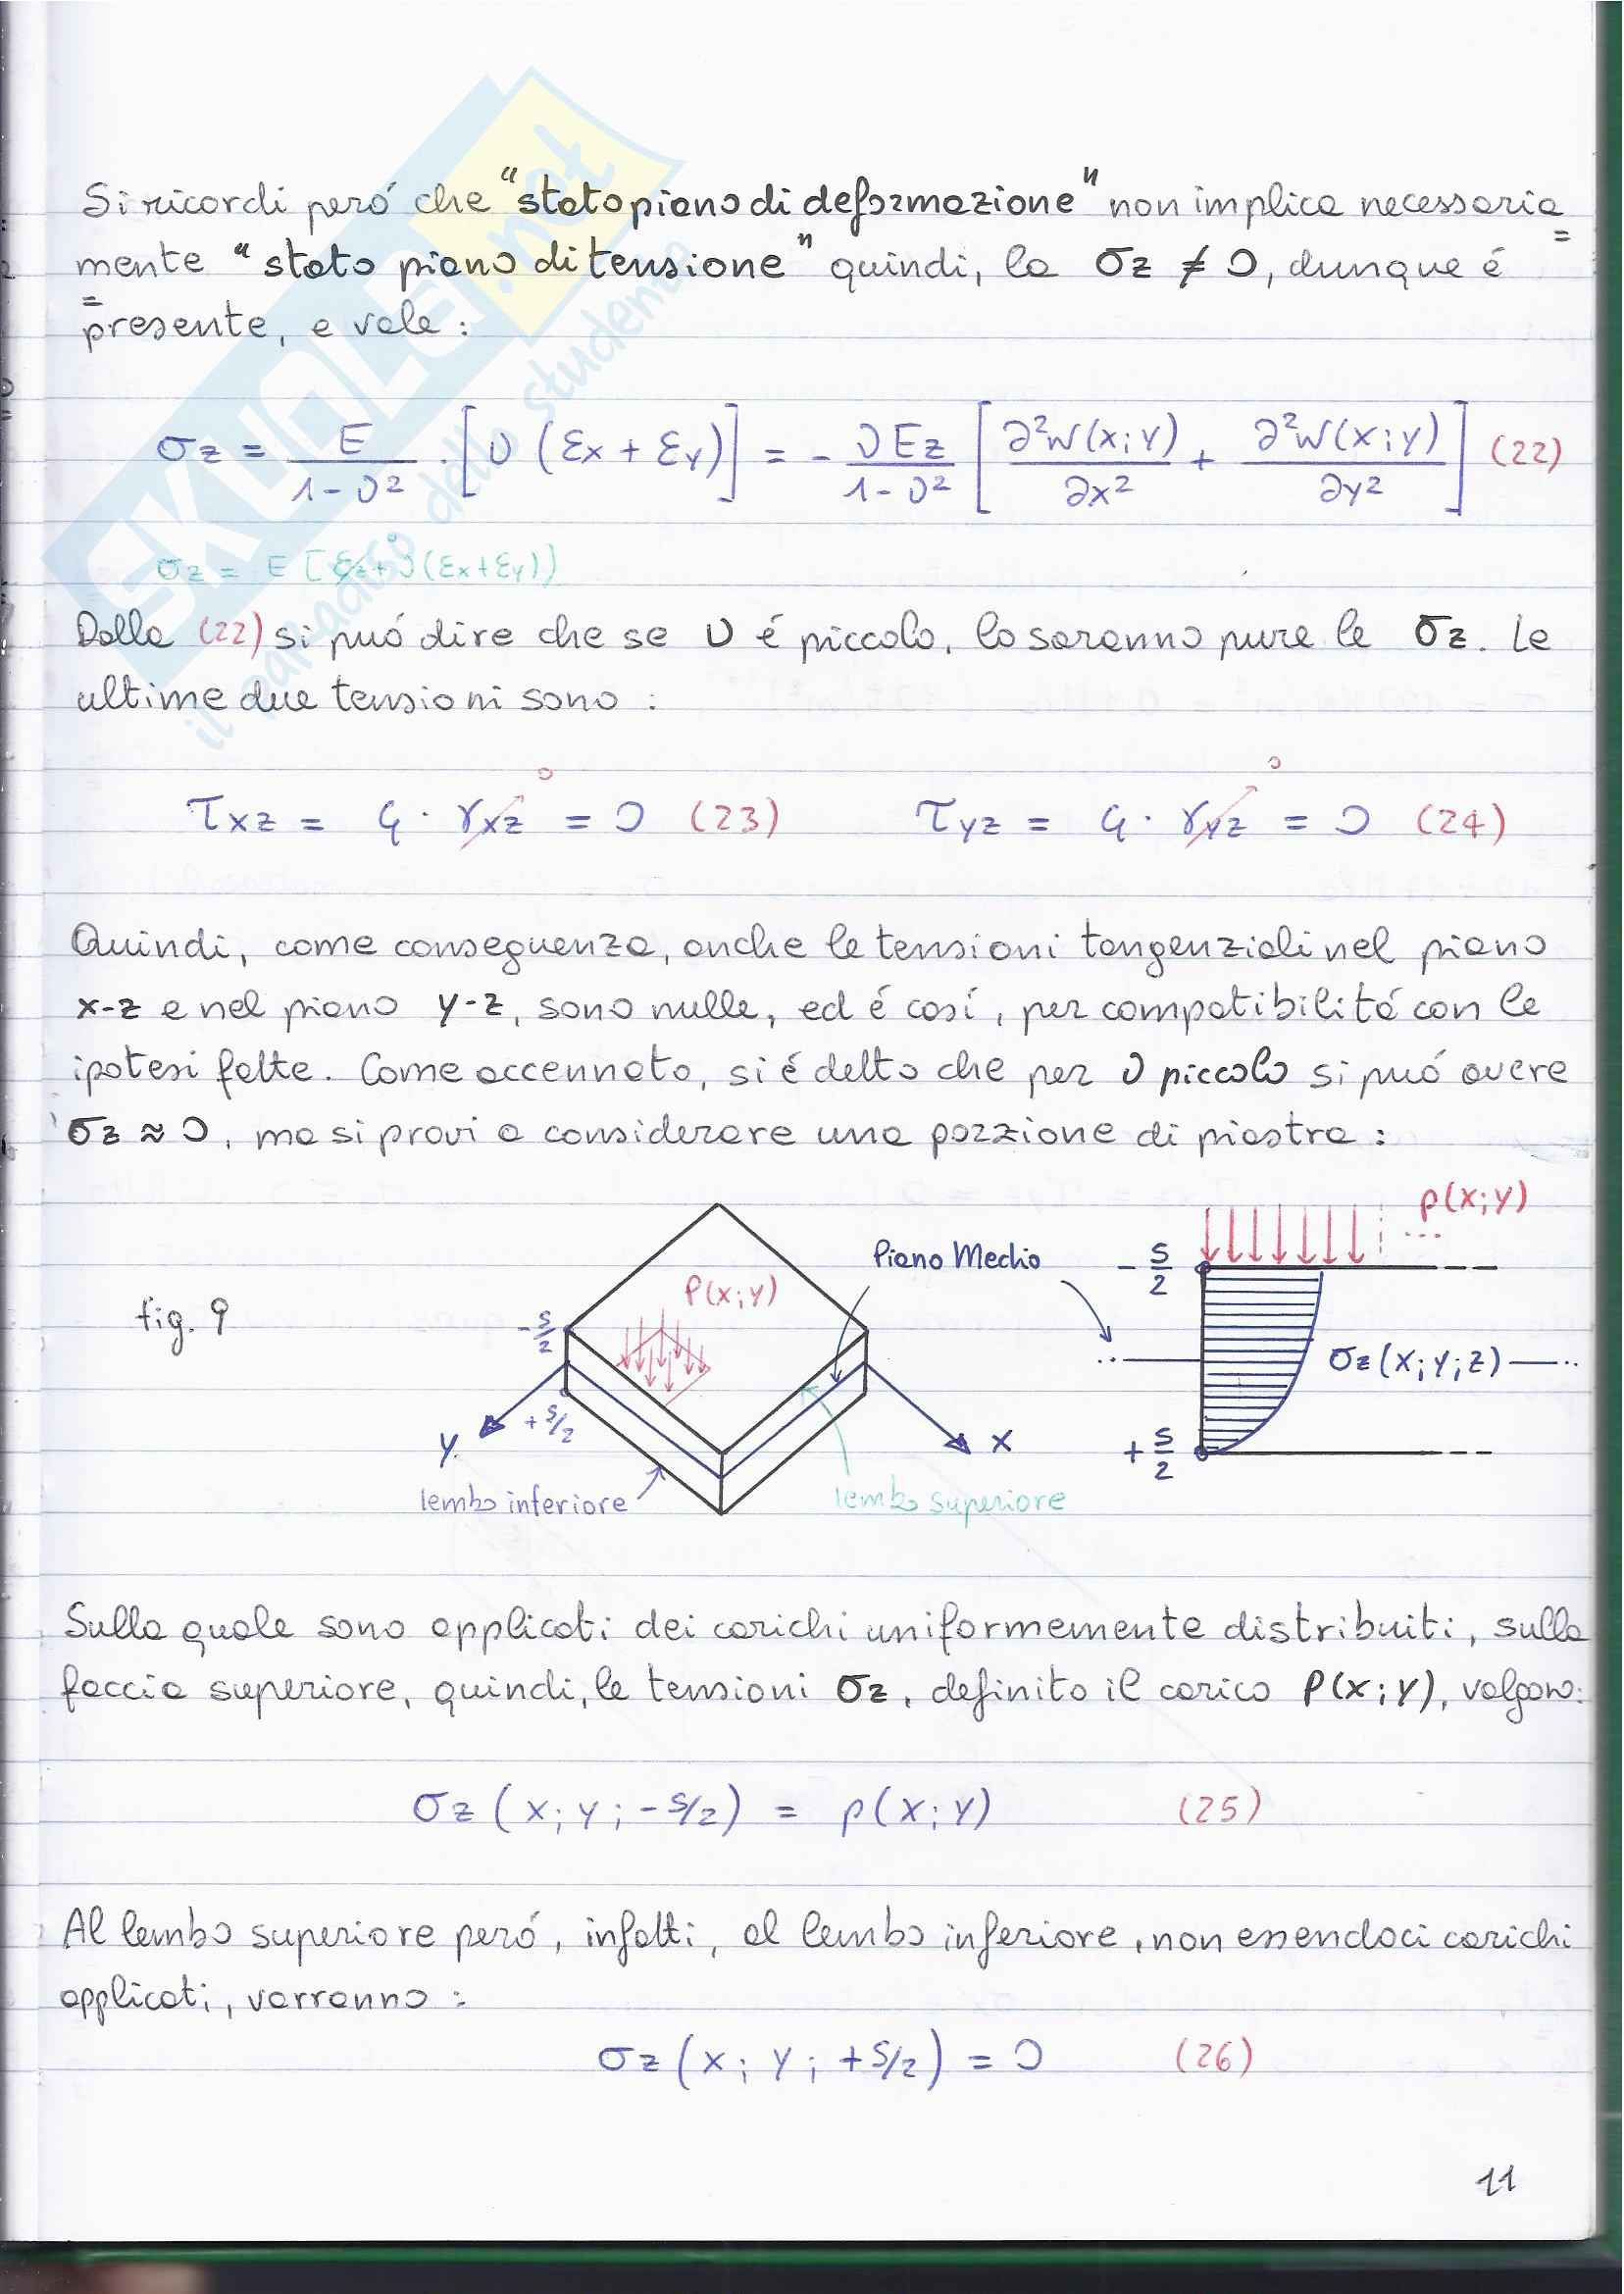 SKUOLA.net
il paradiso dello studente
Si ricordi peró che "stato piano di deformazione" non implica necessaria=
mente "stato piano di tensione" quindi, la σz ≠ 0, dunque é
=presente, e vale:
σz = E/(1-ν²) · [ν (εx + εy)] = - νEz/(1-ν²) [∂²w(x;y)/∂x² + ∂²w(x;y)/∂y²] (22)
σz = E [εz + ν(εx+εy)]
0
Dalla (22) si puó dire che se ν é piccolo, lo saranno pure le σz. Le
ultime due tensioni sono:
0 0
τxz = G · γxz = 0 (23) τyz = G · γyz = 0 (24)
Quindi, come conseguenza, anche le tensioni tangenziali nel piano
x-z e nel piano y-z, sono nulle, ed é cosí, per compatibilitá con le
ipotesi fatte. Come accennato, si é detto che per ν piccolo si puó avere
σz ≈ 0, ma si provi a considerare una porzione di piastra:
fig. 9
P(x;y)
Piano Medio
-s/2
+s/2
y
x
lembo inferiore
lembo superiore
p(x;y)
...
-s/2
σz(x;y;z)
+s/2
Sulla quale sono applicati dei carichi uniformemente distribuiti, sulla
faccia superiore, quindi, le tensioni σz, definito il carico P(x;y), valgono:
σz(x;y;-s/2) = p(x;y) (25)
Al lembo superiore peró, infatti, al lembo inferiore, non essendoci carichi
applicati, varranno:
σz(x;y;+s/2) = 0 (26)
11